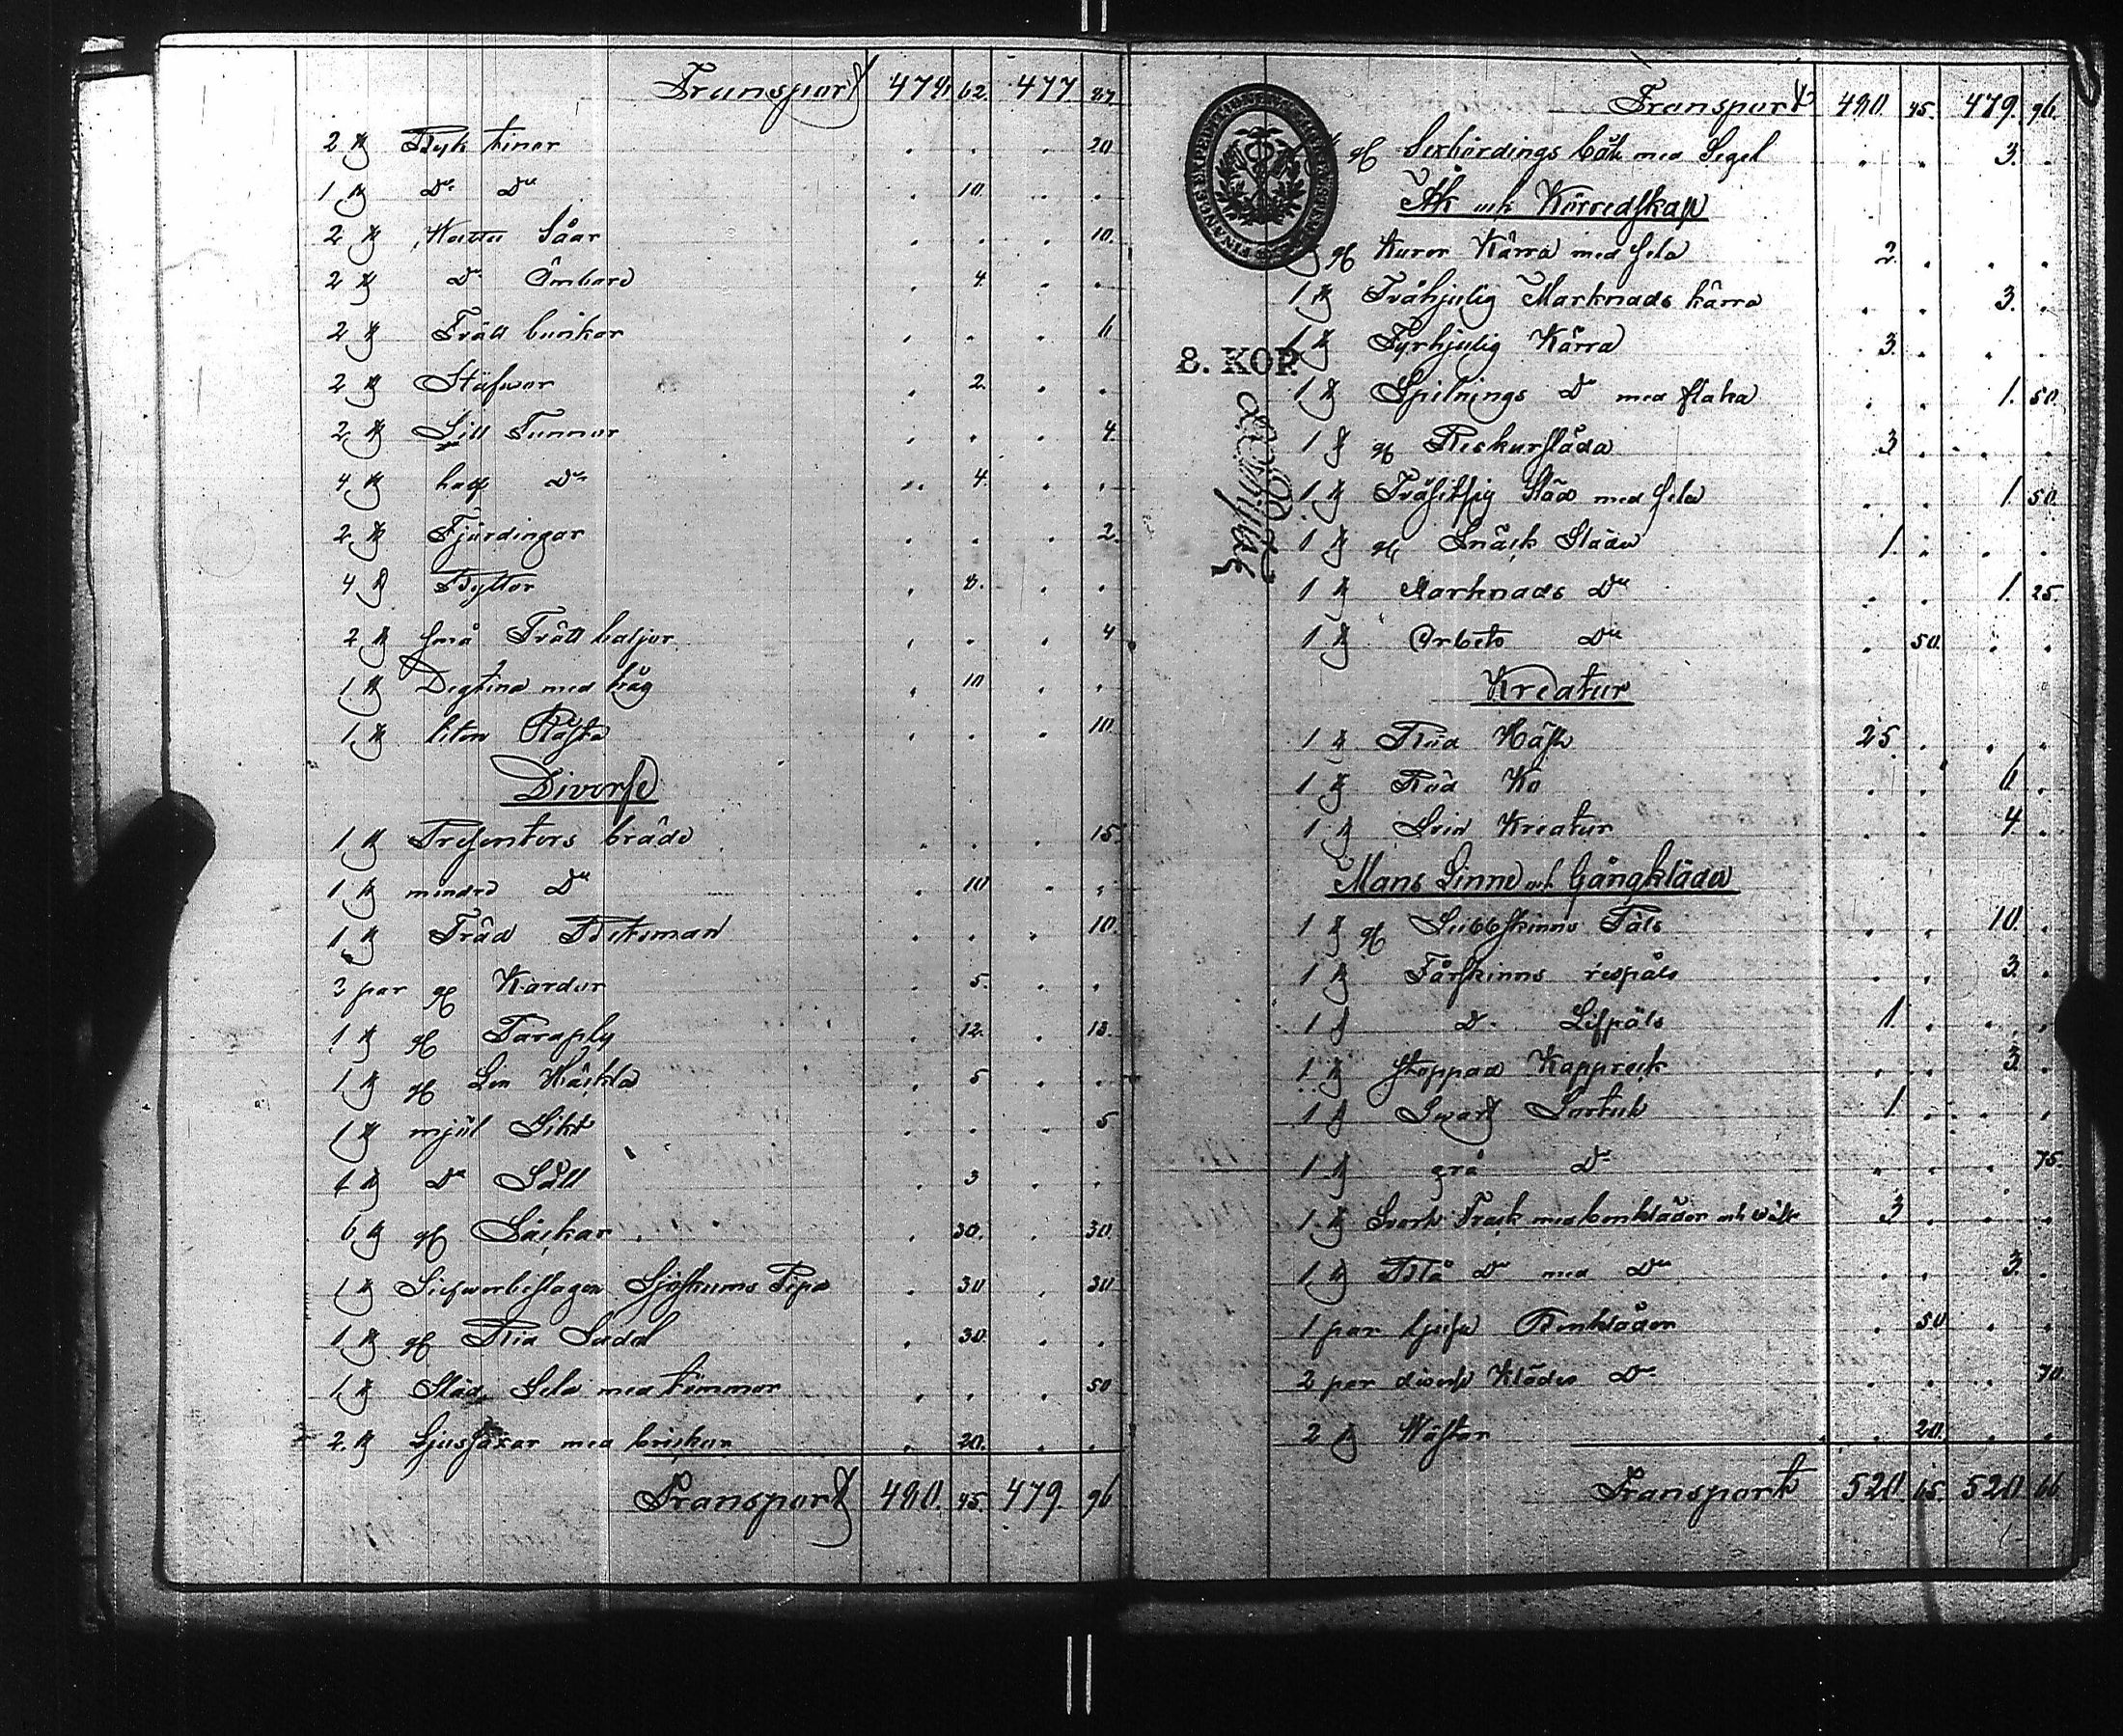 Transport 478 62. 477 87
2 st Byk tinor 20
1 st Do Do 10.
2 st Såar 10.
2 st Do Ämbare 4.
2 st Trätt bunkar 6
2 st Stäfwor 2.
2 st Sill Tunnor 4.
4 st half Do 4.
2 st Fjärdingar 2.
4 st Byttor 8.
2 st små Trätt baljor 4
1 st Degtina med tråg 10
1 st liten 10.
Diverse
1 st Presenters bräde 15.
1 st mindre Do 10
1 st Träd Betsman 10
3 par gl Kardor 5.
1 st gl Paraply 12. 13.
1 st gl Lin Häckla 5
1 st mjöl Sikt 5
1 st Do Såll 3
6 st gl Säckar 30. 30.
1 st Silfwerbeslagen Sjöskums Pipa 30 30
1 st gl Rid Sadel 30
1 st Släd Sela med tömmar 50
2. st Ljussaxar med brickor 20.
Transport 480. 45. 479 96
Transport 480. 45. 479. 96.
gl Sexbördings båt med Segel 3.
Åk och Körredskap
gl Kuror Kärra med sela 2.
1 st Tvåhjulig Marknads kärra 3.
8. KOP.
1 st Fyrhjulig Kärra 3.
1 st Spilnings Do med flaka 1. 50.
1 st gl Reskursläda 3
1 st Tväsitsig Släde med sela 1. 50.
1 st gl Snäck Släda 1.
1 st Marknads Do 1. 25.
1 st Arbets Do 50.
Kreatur
1 st Röd Häst 25.
1 st Röd Ko 6.
1 st Svin Kreatur 4.
Mans Linne och Gångkläder
1 st gl Subbskinns Päls 10.
1 st Fårskinns respäls 3.
1 st Do Lifpäls 1.
1 st stoppad Kapprock 3.
1 st Swart Sortuk 1
1 st grå Do 75.
1 st Svart Frack med benkläder och väst 3
1 st Blå Do med Do 3.
1 par ljusa Benkläder 50
2 par diverse Klädes Do 70
2 st Wästar 20.
Transport 520. 65. 520 66